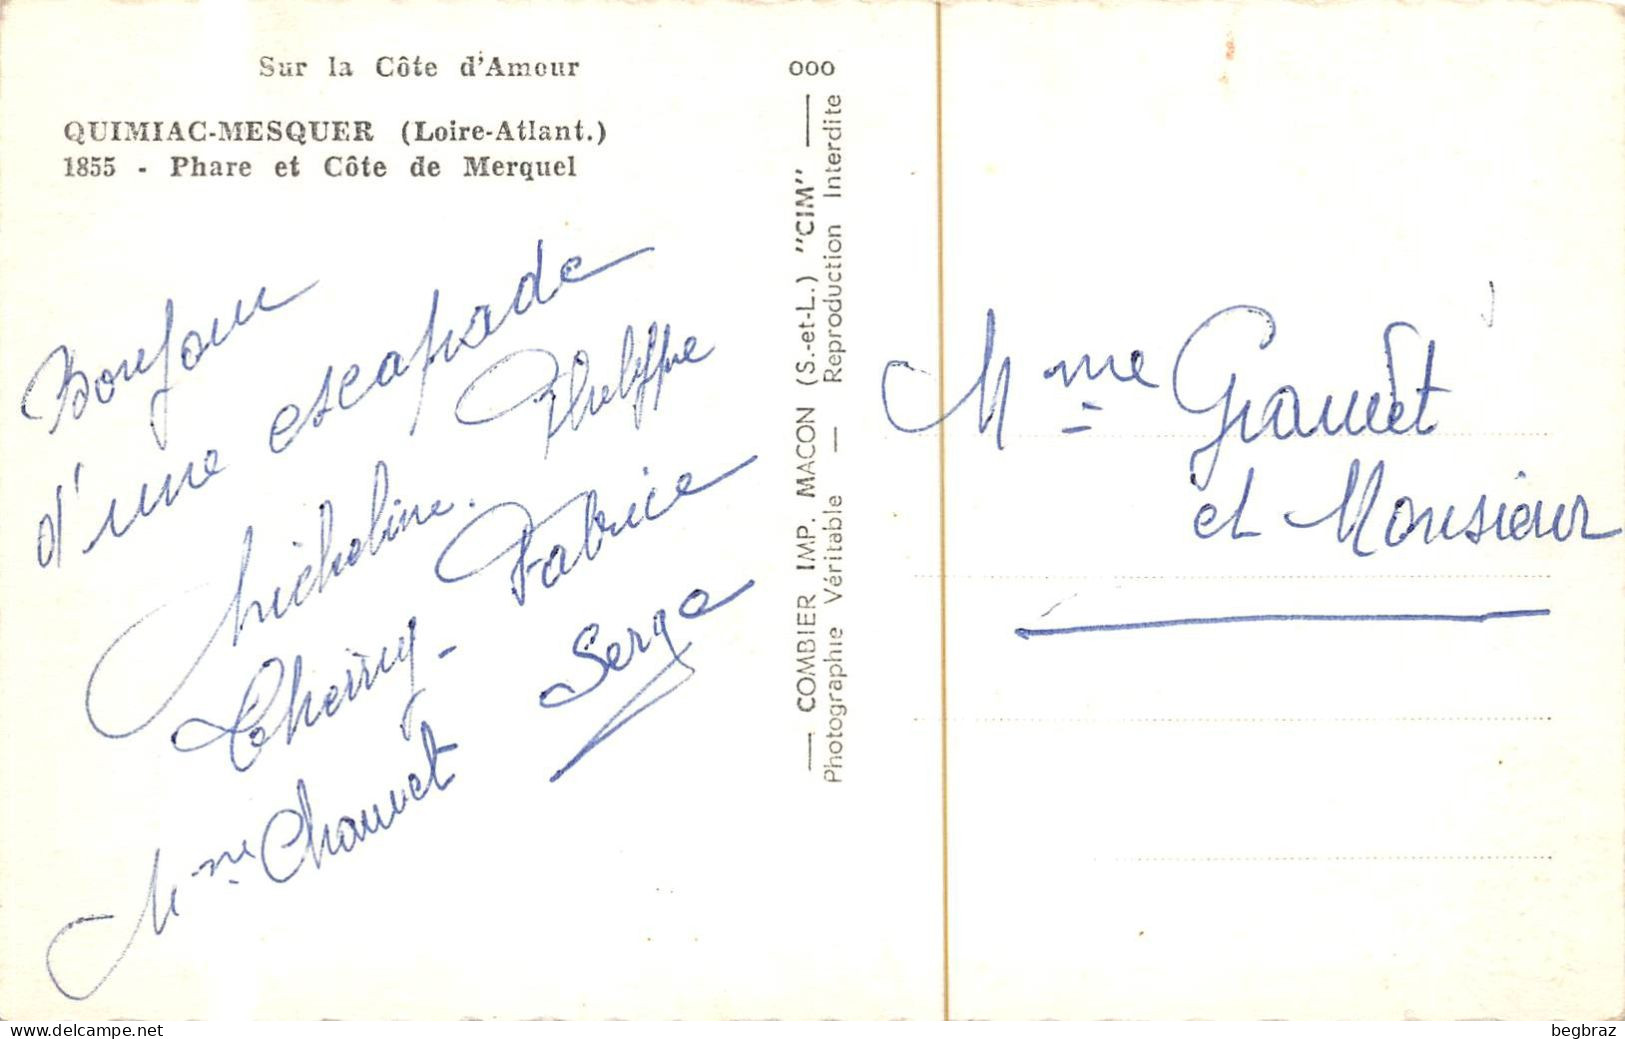 Sur la Côte d'Amour
QUIMIAC-MESQUER (Loire-Atlant.)
1855 - Phare et Côte de Merquel
Bonjour
d'une escapade
Micheline. Philippe
Thierry - Fabrice
Mme Chauvet Serge
000
— COMBIER IMP. MACON (S.-et-L.) "CIM" —
Photographie Véritable — Reproduction Interdite
Mme
et Monsieur
www.delcampe.net
begbraz